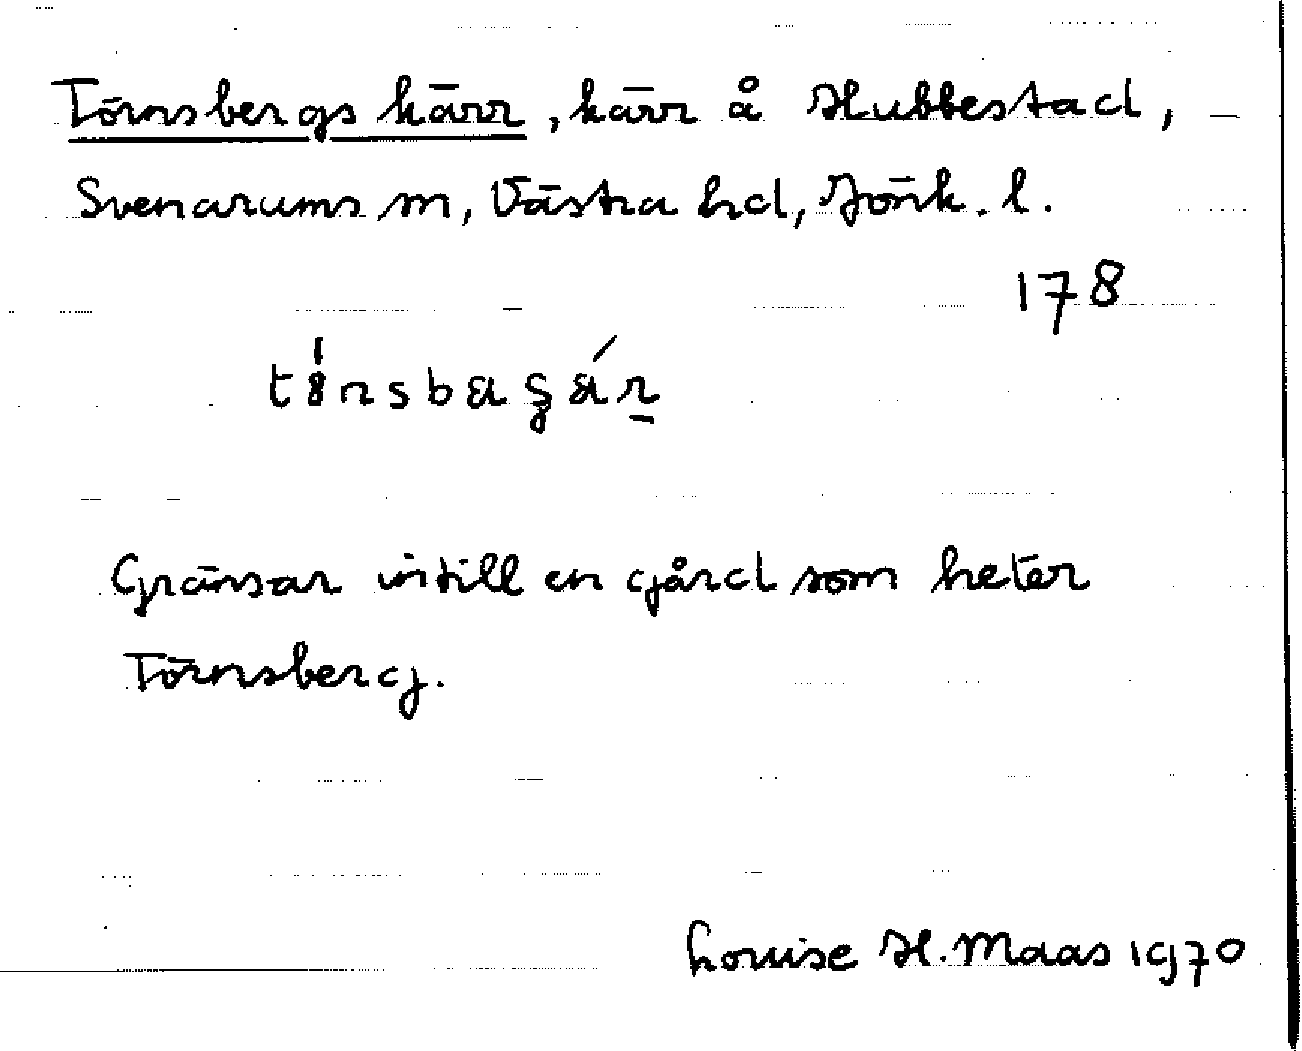 Törnsbergs kärr, kärr å Hubbestad,
Svenarums sn, Västra hd, Jönk. l.
178
Gränsar intill en gård som heter
Törnsberg.
Louise H. Maas 1970